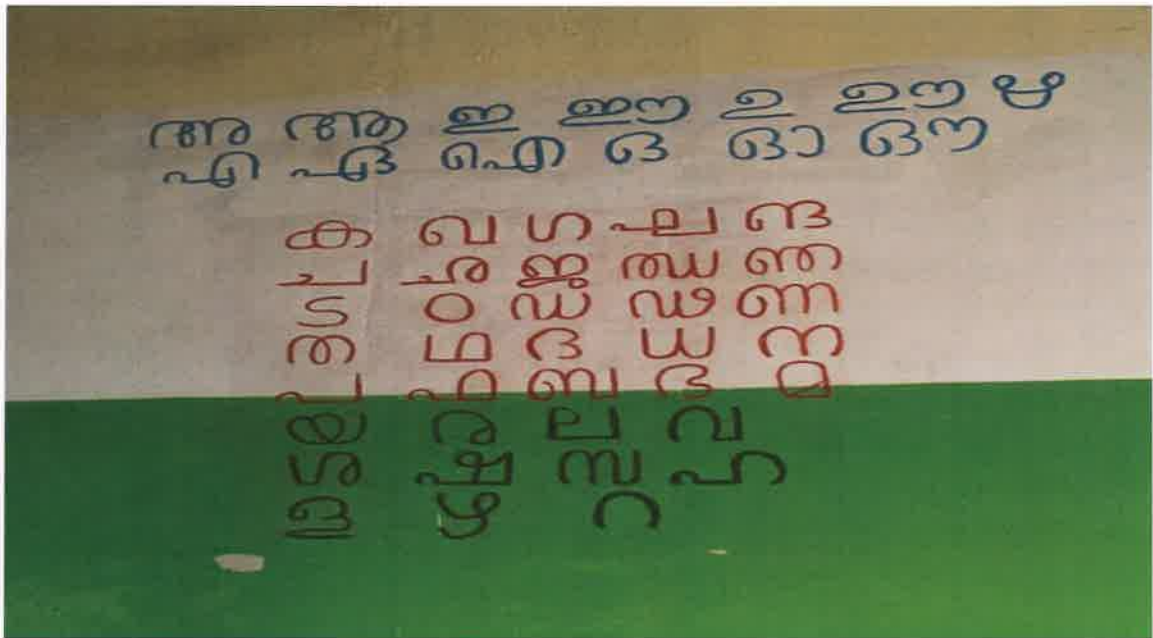 അ ആ ഇ ഈ ഉ ഊ ഋ
എ ഏ ഐ ഒ ഓ ഔ
ക ഖ ഗ ഘ ങ
ച ഛ ജ ഝ ഞ
ട ഠ ഡ ഢ ണ
ത ഥ ദ ധ ന
പ ഫ ബ ഭ മ
യ ര ല വ
ശ ഷ സ ഹ
ള ഴ റ